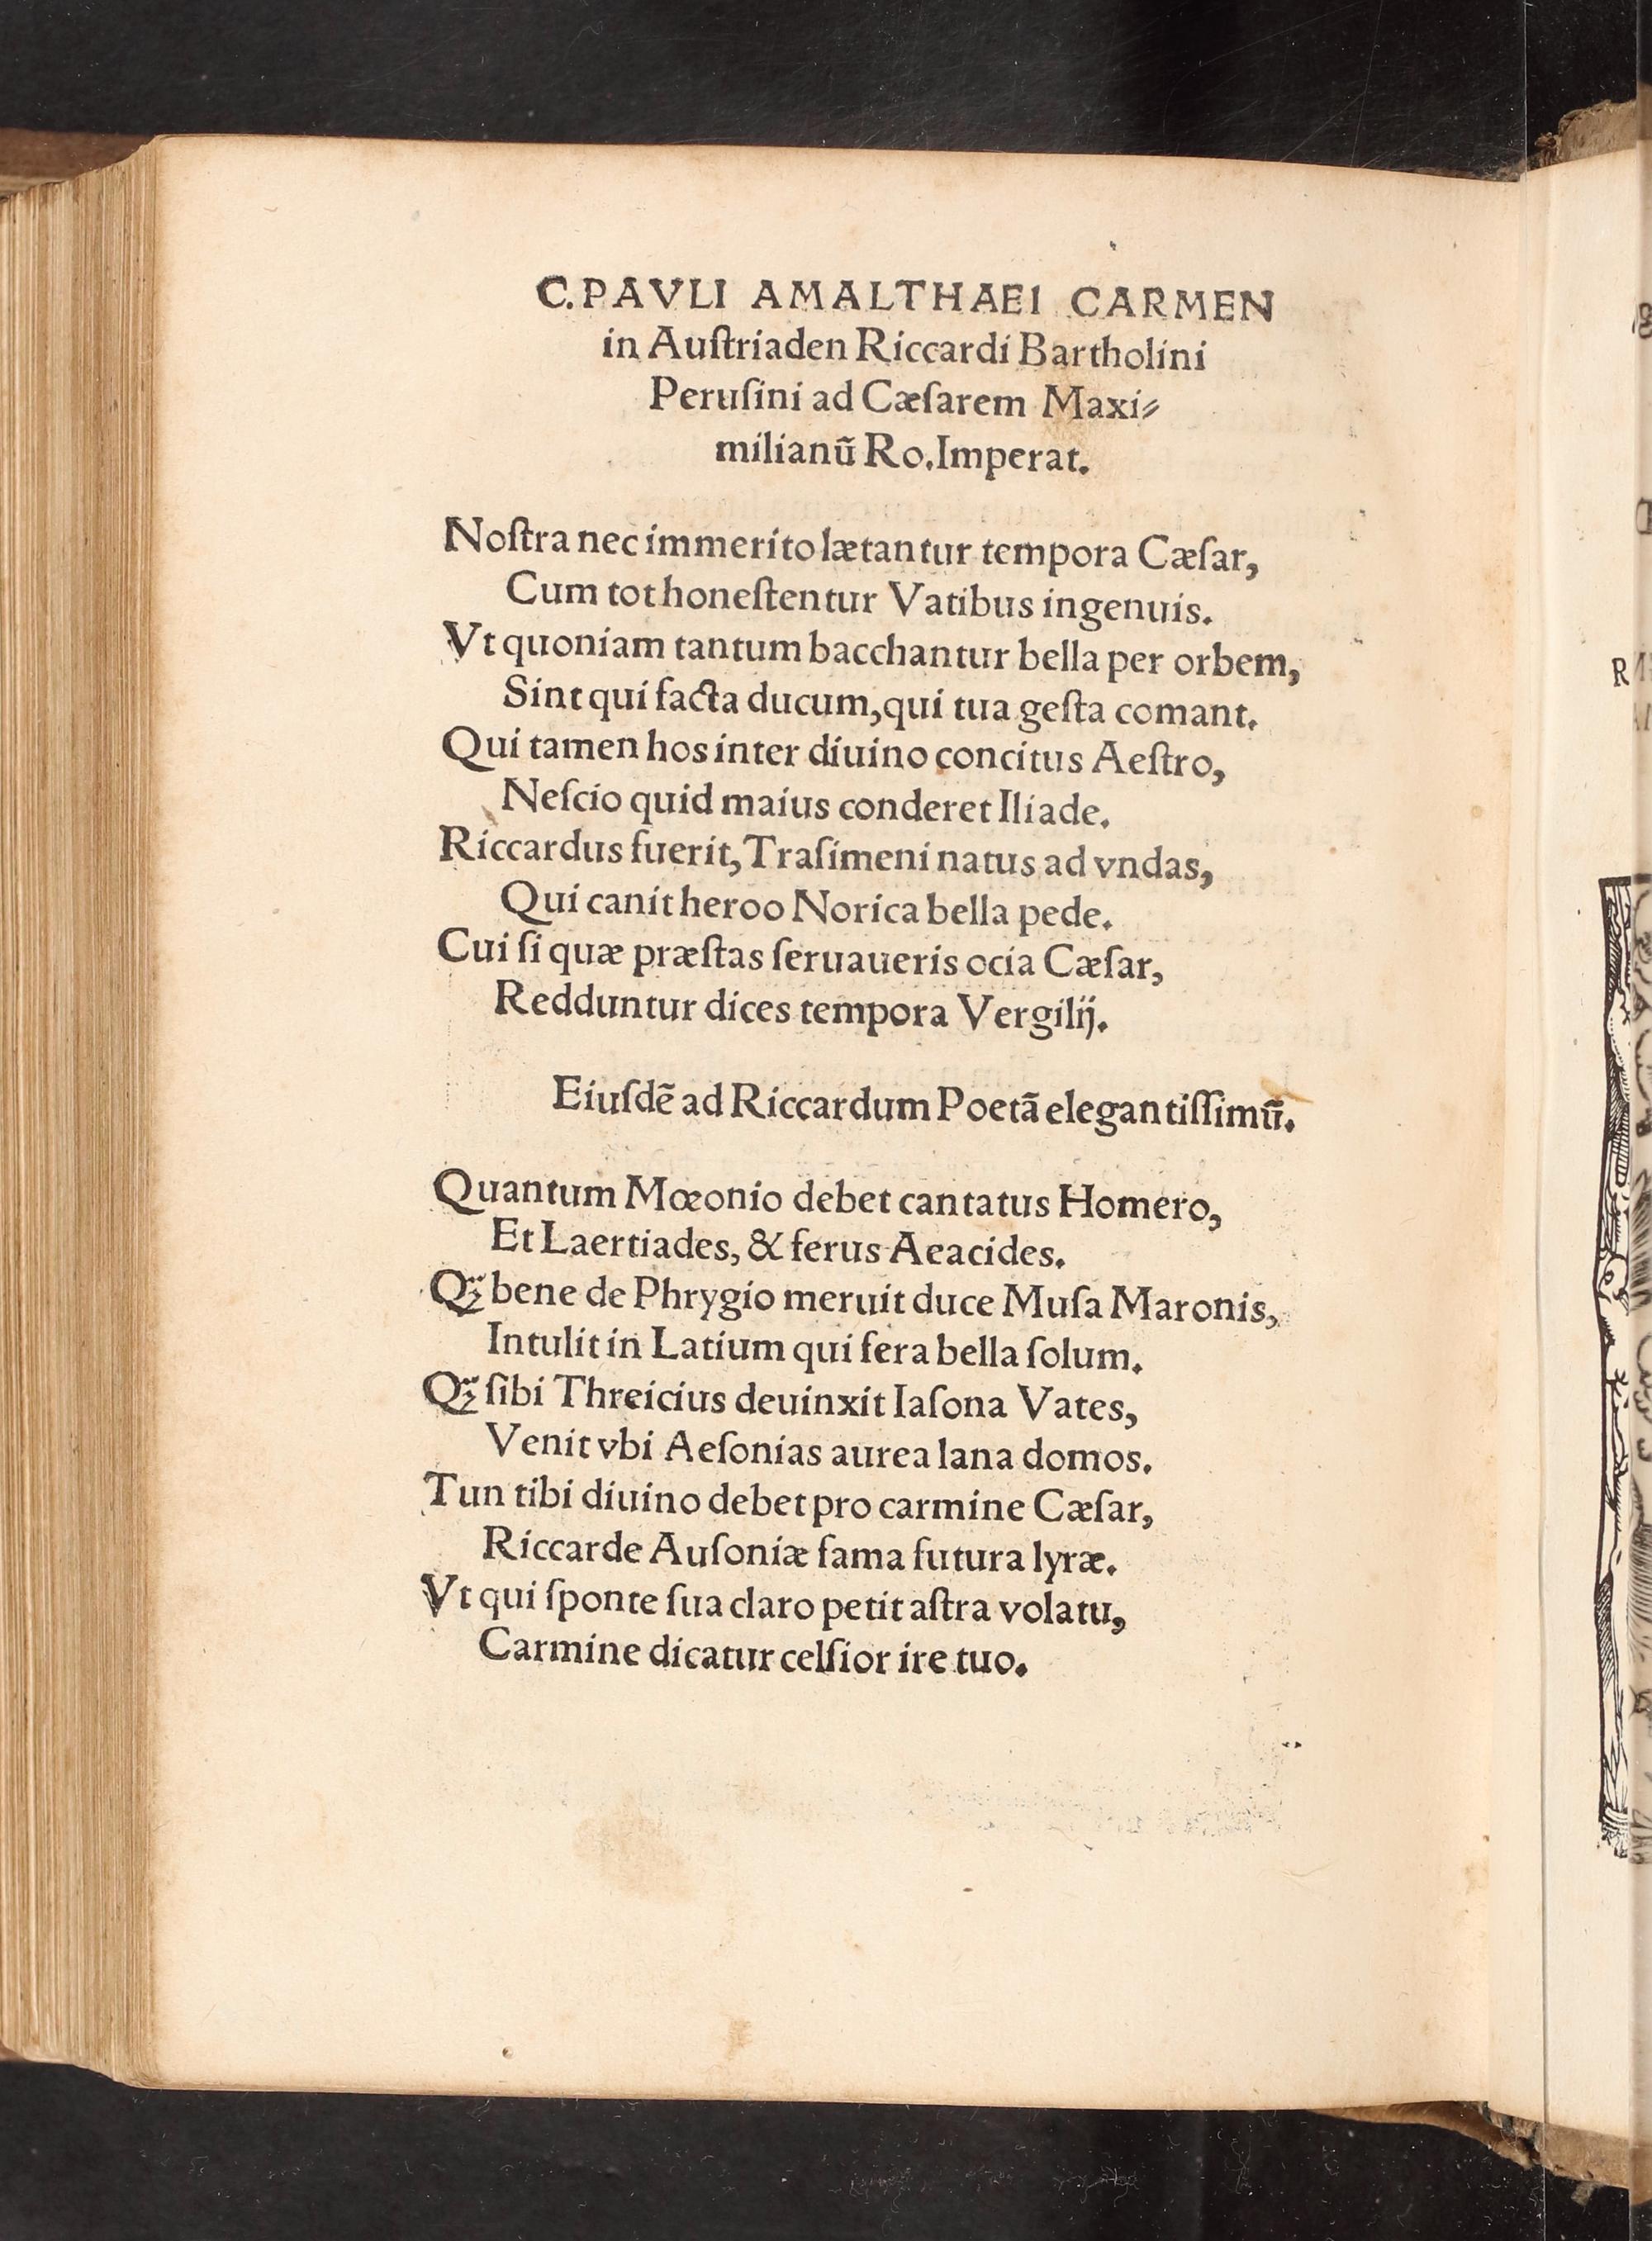 C. PAVLI AMALTHAEI CARMEN
in Auſtriaden Riccardi Bartholini
Peruſini ad Cæſarem Maxi⸗
milianũ Ro. Imperat.
Noſtra nec immerito lætantur tempora Cæſar,
Cum tot honeſtentur Vatibus ingenuis.
Vt quoniam tantum bacchantur bella per orbem,
Sint qui facta ducum, qui tua geſta comant.
Qui tamen hos inter diuino concitus Aeſtro,
Neſcio quid maius conderet Iliade.
Riccardus fuerit, Traſimeni natus ad vndas,
Qui canit heroo Norica bella pede.
Cui ſi quæ præſtas ſeruaueris ocia Cæſar,
Redduntur dices tempora Vergilij.
Eiuſdẽ ad Riccardum Poetã elegantiſſimũ.
Quantum Mœonio debet cantatus Homero,
Et Laertiades, & ferus Aeacides.
Qꝫ bene de Phrygio meruit duce Muſa Maronis,
Intulit in Latium qui fera bella ſolum.
Qꝫ ſibi Threicius deuinxit Iaſona Vates,
Venit vbi Aeſonias aurea lana domos.
Tun tibi diuino debet pro carmine Cæſar,
Riccarde Auſoniæ fama futura lyræ.
Vt qui ſponte ſua claro petit aſtra volatu,
Carmine dicatur celſior ire tuo.